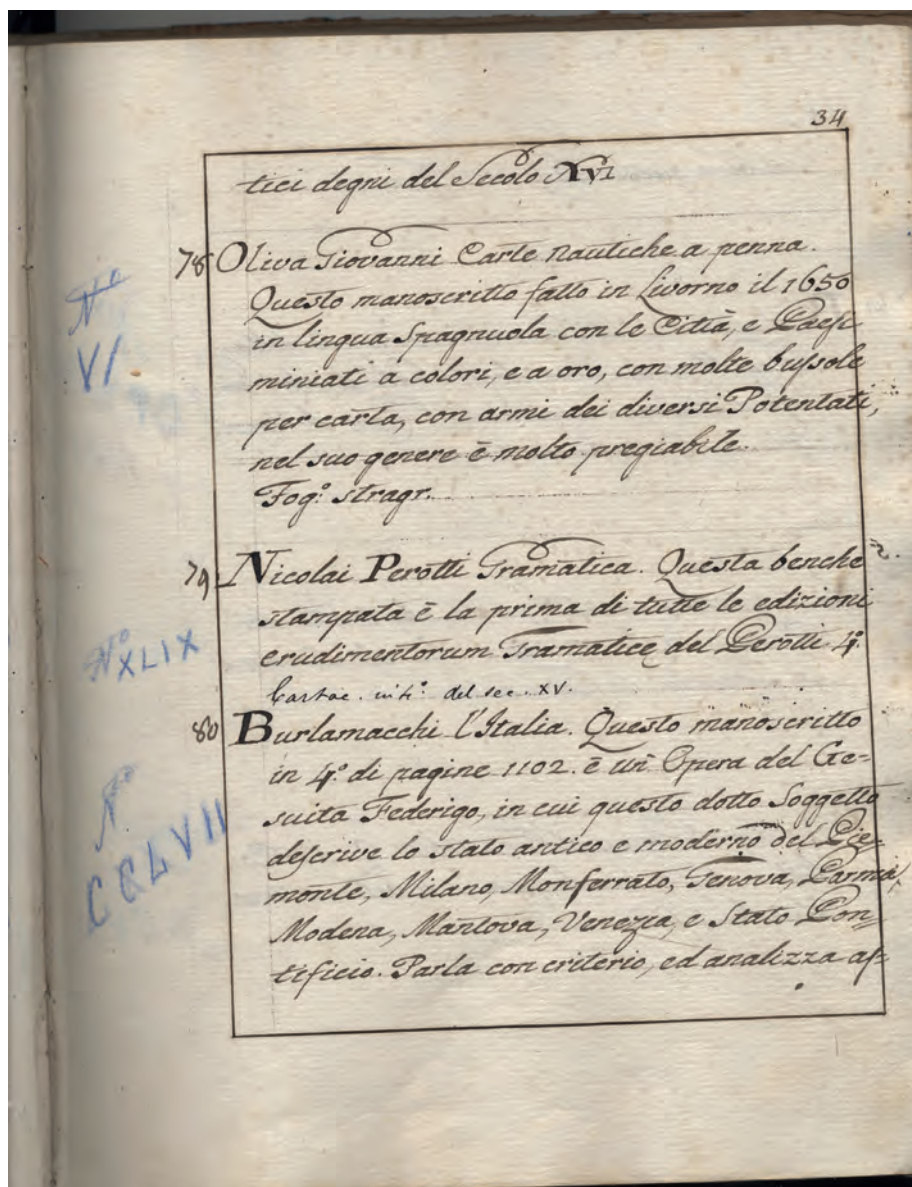 34
tici degni del Secolo XVI
78 Oliva Giovanni Carte nautiche a penna.
Nº VI
Questo manoscritto fatto in Livorno il 1650
in lingua Spagnuola con le Città, e Paesi
miniati a colori, e a oro, con molte bussole
per carta, con armi dei diversi Potentati,
nel suo genere è molto pregiabile.
Fogº stragr.
79 Nicolai Perotti Gramatica. Questa benche
stampata è la prima di tutte le edizioni
erudimentorum Gramatice del Perotti 4º.
Nº XLIX
Cartac. in 4º. del sec. XV.
80 Burlamacchi l'Italia. Questo manoscritto
in 4º. di pagine 1102. è un Opera del Ge=
suita Federigo, in cui questo dotto Soggetto
N. CCLVII
descrive lo stato antico e moderno del Pie=
monte, Milano, Monferrato, Genova, Parma,
Modena, Mantova, Venezia, e Stato Pon=
tificio. Parla con criterio, ed analizza as=